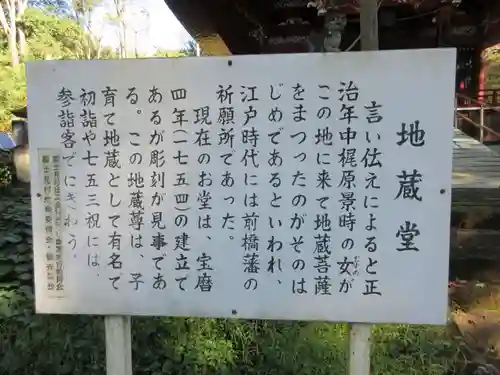 地蔵堂
言い伝えによると正
治年中梶原景時の女が
むすめ
この地に来て地蔵菩薩
をまつったのがそのは
じめであるといわれ、
江戸時代には前橋藩の
祈願所であった。
現在のお堂は、宝暦
四年(一七五四)の建立で
あるが彫刻が見事であ
る。この地蔵尊は、子
育て地蔵として有名で
初詣や七五三祝には、
参詣客でにぎわう。